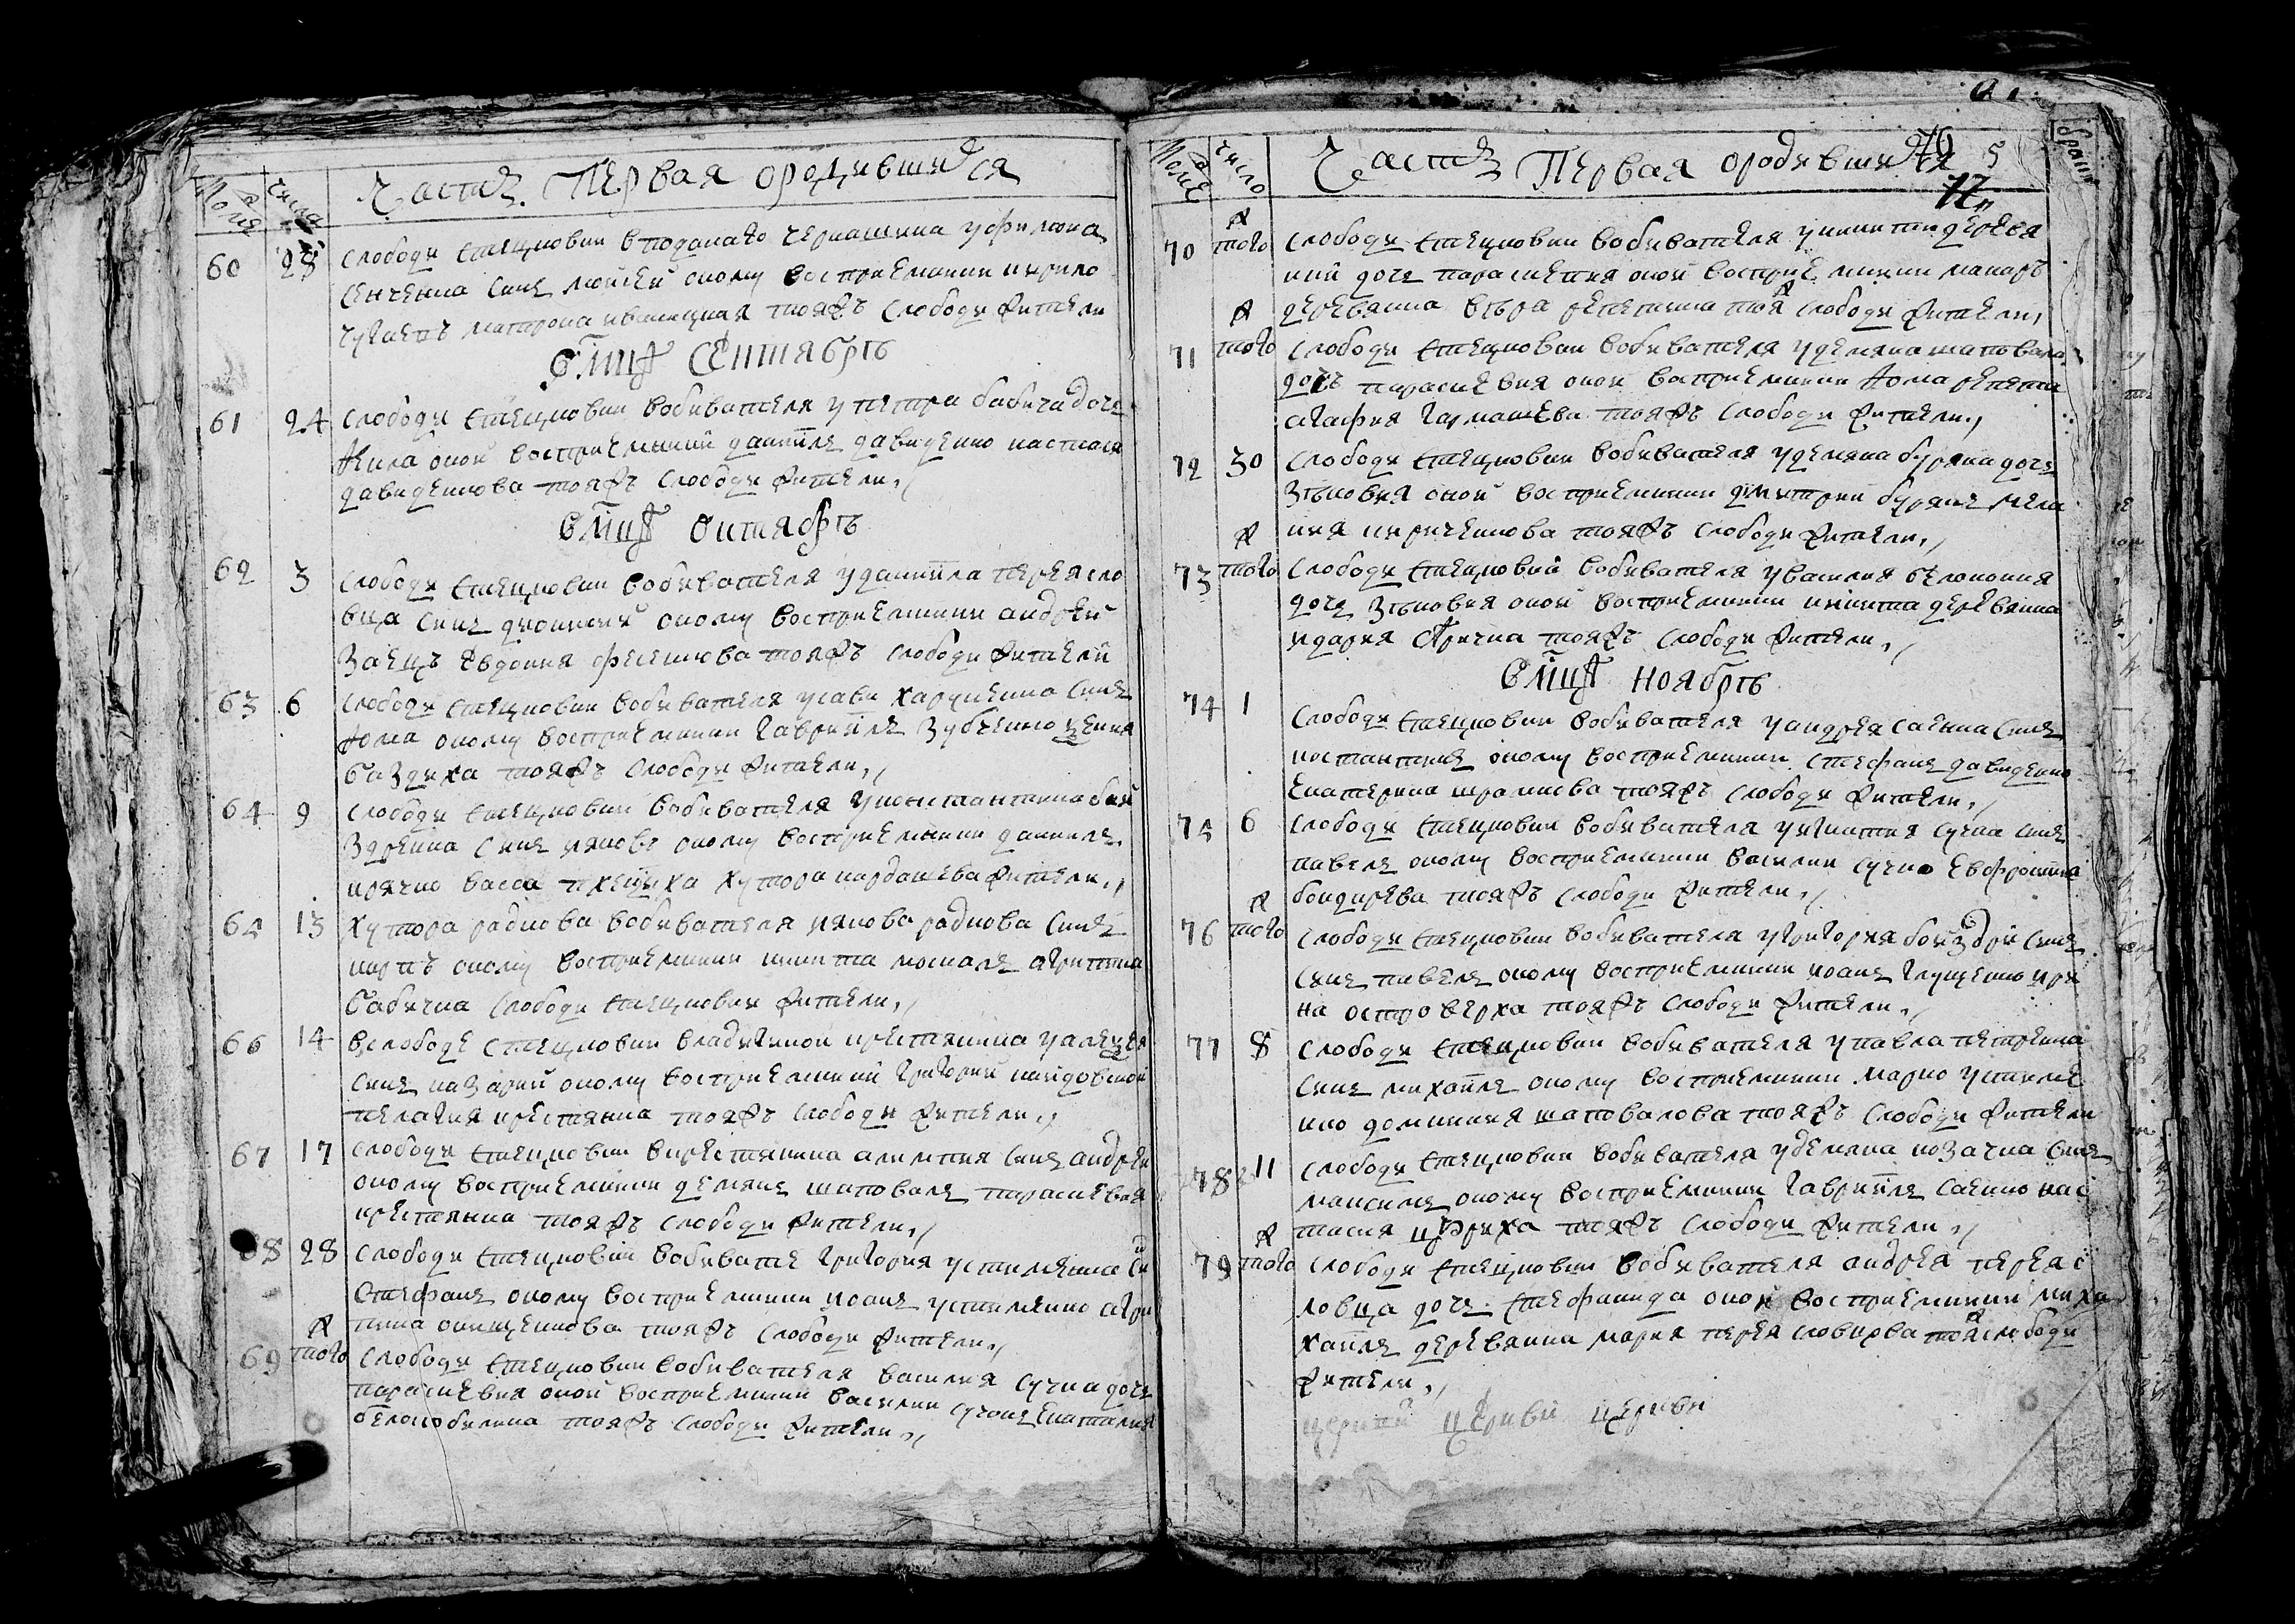 Часть Первая ородившихся
числа
60 28 слободи Степцовки вподаного черкашина уфилиона
сенченка синъ мойсей оному восприемники кирило
чугаевъ матрона иваницкая тояжъ слободи жители
вмцѣ Сентябрь
61 24 слободи Степцовки вобивателя упетра бабича дочъ
фекла оной восприемники даниилъ давиденко настасия
давиденкова тояжъ слободи жители
вмцѣ октябрь
62 3 слободи Степцовки вобивателя уданиила переясло
вца синъ дионисий оному восприемники андрей
заецъ Евдокия фесенкова тояжъ слободи жители
63 6 слободи Степцовки вобивателя усави харченка синъ
фома оному восприемники гавриилъ зубченко
тояжъ слободи жители
64 9 слободи Степцовки вобивателя уконстантина
синъ яковъ оному восприемники даниилъ
васса хутора кардашева жители
65 13 хутора радкова вобивателя якова радкова синъ
карпъ оному восприемники никита москаль агрипина
бабична слободи Степцовки жители
66 14 вслободе Степцовки крестянина уалексея
синъ назарий оному восприемники григорий
пелагия крестянка тояжъ слободи жители
67 17 слободи Степцовки вкрестянина алимпия синъ андрей
оному восприемники демянъ шаповалъ параскевия
крестянка тояжъ слободи жители
68 28 слободи Степцовки вобивате григория устименка си
Стефанъ оному восприемники иоанъ устименко агри
пина онищенкова тояжъ слободи жители
69 того слободи Степцовки вобивателя василия сучка дочъ
параскевия оной восприемники василий сучокъ
белокобилка тояжъ слободи жители
число
Часть Первая ородившихся
76 5
70 того слободи Степцовки вобивателя уникити деревя
дочъ параскевия оной восприемники макаръ
деревянка вѣра тоя слободи жители
71 того слободи Степцовки вобивателя удемяна шаповала
дочъ параскевия оной восприемники фома
агафия гармашева тояжъ слободи жители
72 30 слободи Степцовки вобивателя удемяна буряка дочъ
зѣновия оной восприемники димитрий бурякъ мела
ния кириченкова тояжъ слободи жители
73 того слободи Степцовки вобивателя увасилия белоконя
дочъ зѣновия оной восприемники никита деревянка
идария тояжъ слободи жители
вмцѣ ноябрь
74 1 слободи Степцовки вобивателя уандрея саенка синъ
костантинъ оному восприемники стефанъ давиденко
Екатерина шрамкова тояжъ слободи жители
75 6 слободи Степцовки вобивателя уигнатия сучка синъ
павелъ оному восприемники василий сучко Евфросиния
бондирева тояжъ слободи жители
76 того слободи Степцовки вобивателя угригория синъ
синъ павелъ оному восприемники иоанъ глущенко ири
на островерха тояжъ слободи жители
77 8 слободи Степцовки вобивателя упавла петренка
синъ михаилъ оному восприемники марко устиме
нко домникия шаповалова тояжъ слободи жители
78 11 слободи Степцовки вобивателя удемяна козачка синъ
максимъ оному восприемники гавриилъ саенко нас
тасия тояжъ слободи жители
79 того слободи Степцовки вобивателя андрея переяс
ловца дочъ Стефанида оной восприемники миха
хаилъ деревянка мария переясловцова тояслободи
жители
церкви церкви